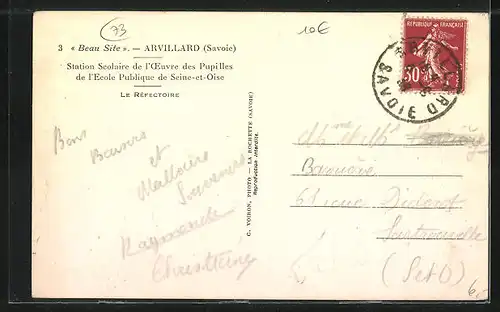 73
10€
3 « Beau Site ». — ARVILLARD (Savoie)
Station Scolaire de l'Œuvre des Pupilles
de l'Ecole Publique de Seine-et-Oise
LE RÉFECTOIRE
Bons
Baisers
et
Meilleurs
Souvenirs
Raymonde
Christiane
C. VOIRON, PHOTO — LA ROCHETTE (SAVOIE)
Reproduction interdite.
RÉPUBLIQUE FRANÇAISE
30
ARVILLARD
SAVOIE
61 rue Diderot
(S et O)
6,-